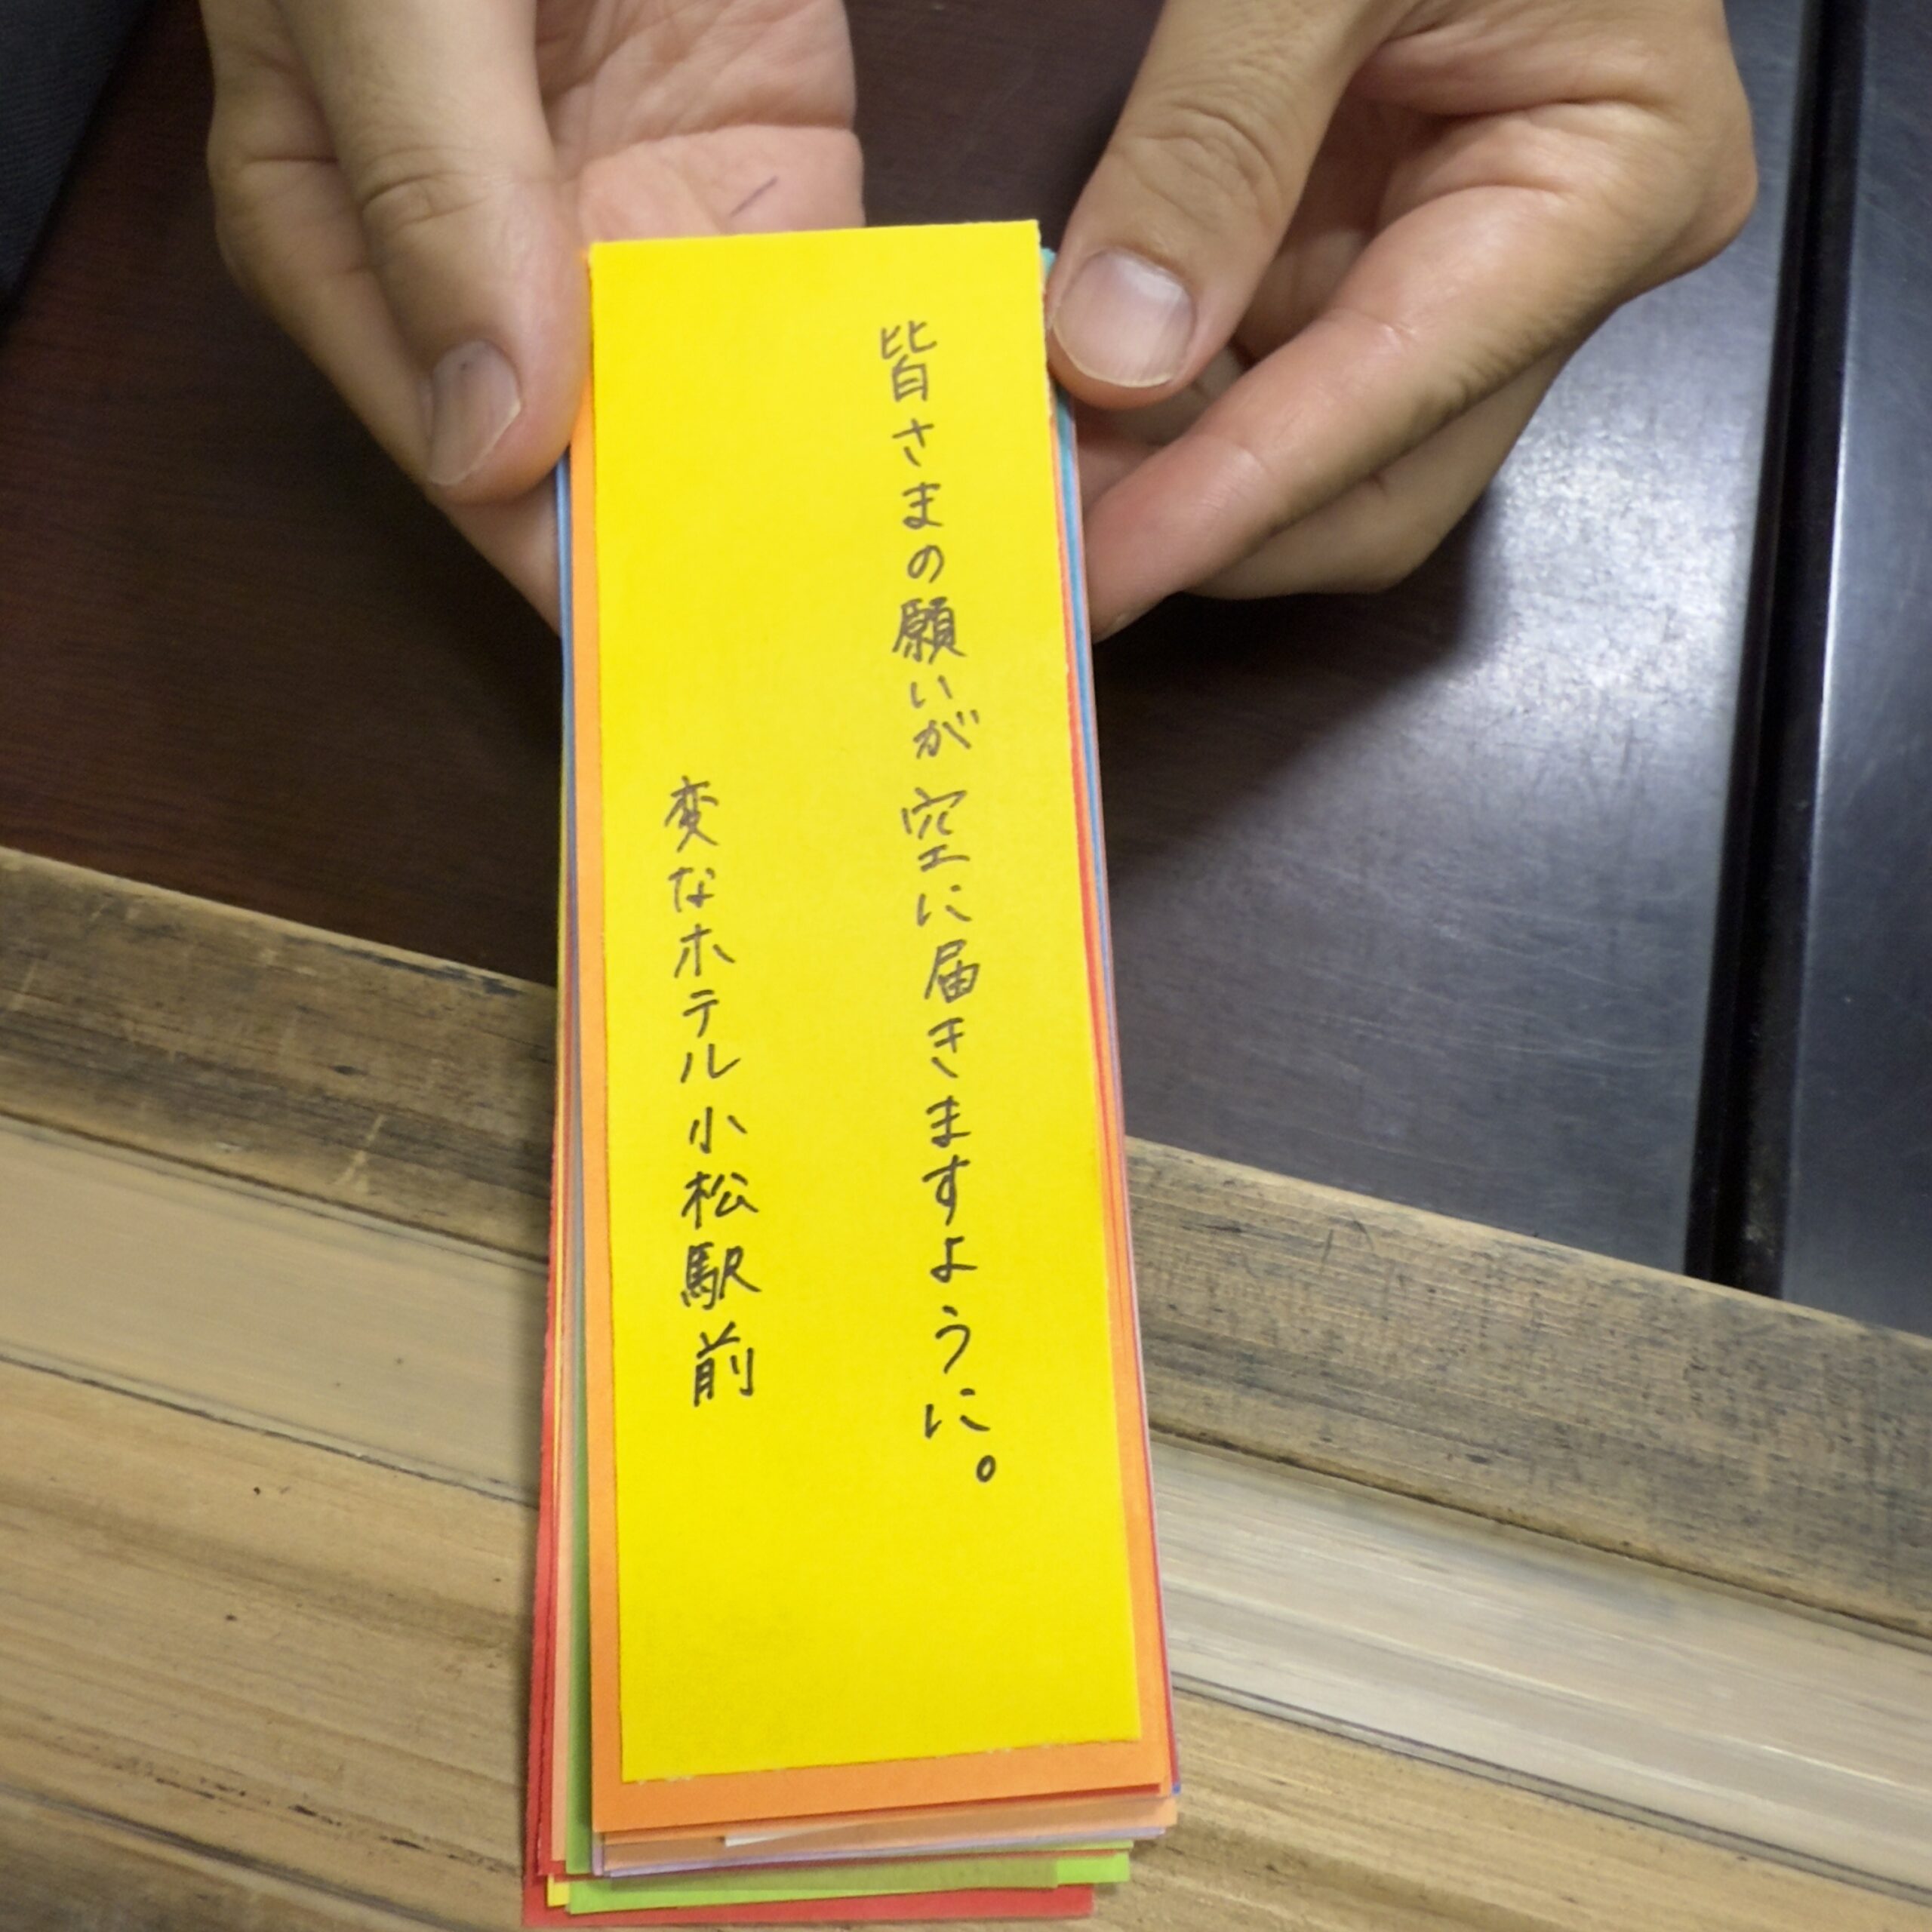 皆さまの願いが空に届きますように。
変なホテル小松駅前